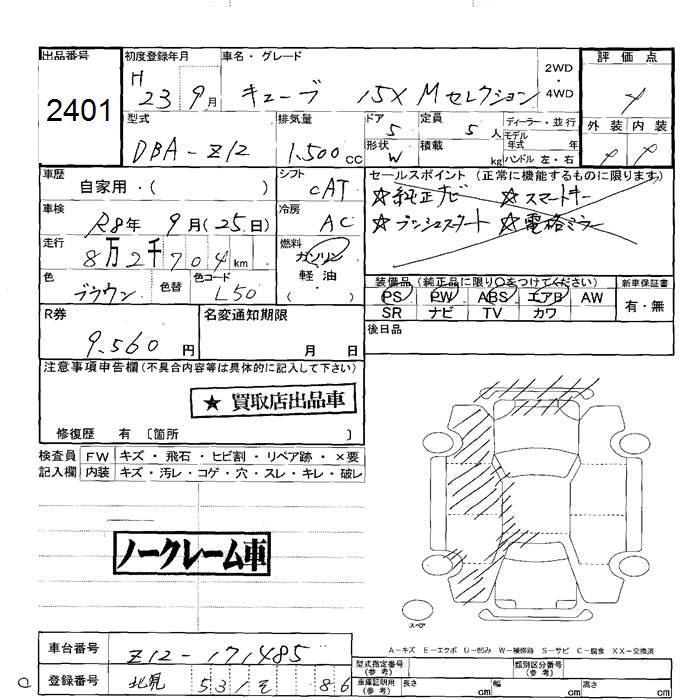 出品番号
2401
初度登録年月
H 23 9月
車名・グレード
キューブ 15X Mセレクション
2WD・4WD
評価点
外装 内装
型式
DBA-Z12
排気量
1.500cc
ドア
5
形状
W
定員
5人
積載
kg
ディーラー・並行
モデル年式 年
ハンドル 左・右
車歴
自家用・( )
シフト
CAT
セールスポイント (正常に機能するものに限ります)
☆純正ナビ ☆スマートキー
☆プッシュスタート ☆電格ミラー
車検
R8年 9月(25日)
冷房
AC
走行
8万2千704km
燃料
ガソリン
軽油
( )
色
ブラウン
色替
色コード
L50
装備品(純正品に限り○をつけてください)
PS PW ABS エアB AW
SR ナビ TV カワ
新車保証書
有・無
R券
9.560円
名変通知期限
月 日
後日品
注意事項申告欄(不具合内容等は具体的に記入して下さい)
★ 買取店出品車
修復歴 有 〔箇所 〕
検査員記入欄
FW キズ・飛石・ヒビ割・リペア跡・×要
内装 キズ・汚レ・コゲ・穴・スレ・キレ・破レ
ノークレーム車
スペア
A-キズ E-エクボ U-凹み W-補修跡 S-サビ C-腐食 XX-交換済
車台番号
Z12-171485
登録番号
北見 531 そ 86
型式指定番号(参考)
類別区分番号(参考)
車庫証明用(参考)
長さ cm 幅 cm 高さ cm